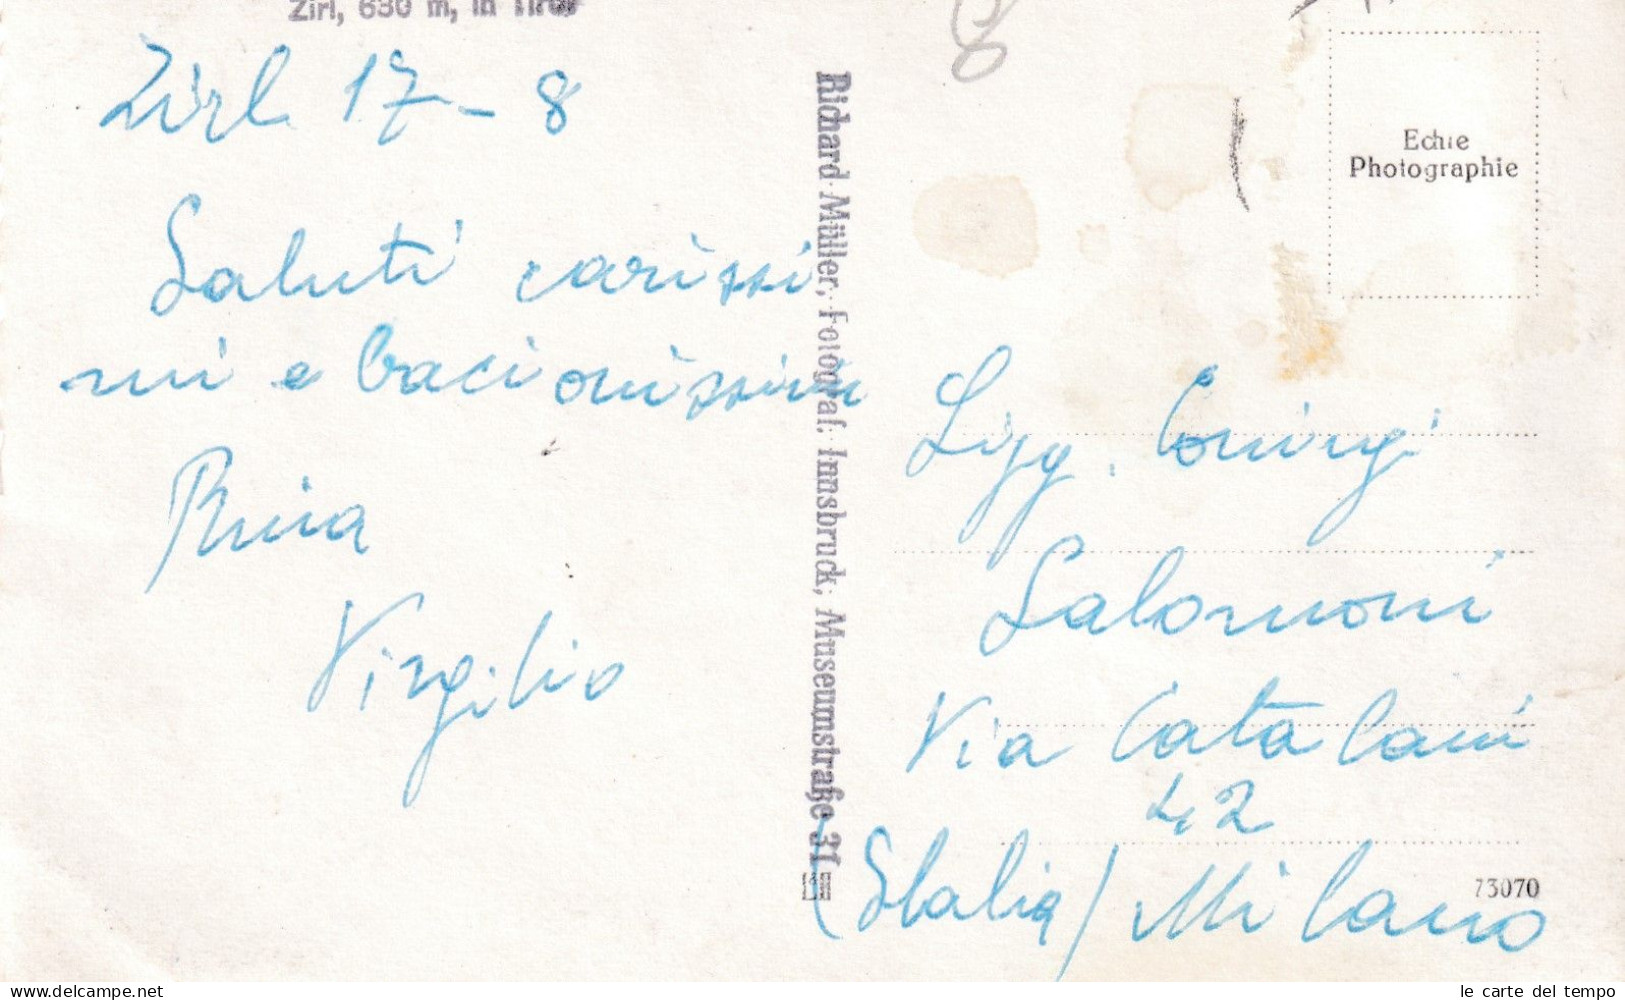 Zirl, 630 m, in Tirol
Zirl 17-8
Saluti carissi
mi e bacionissimi
Pinia
Virgilio
Richard Müller, Fotograf, Innsbruck, Museumstraße 31
Echte
Photographie
Sigg. Coniugi
Salomoni
Via Catalani
42
(Italia) Milano
73070
www.delcampe.net
le carte del tempo